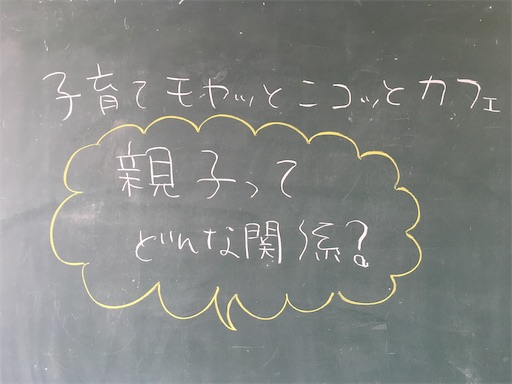 子育てモヤッとニコッとカフェ
親子って
どんな関係?